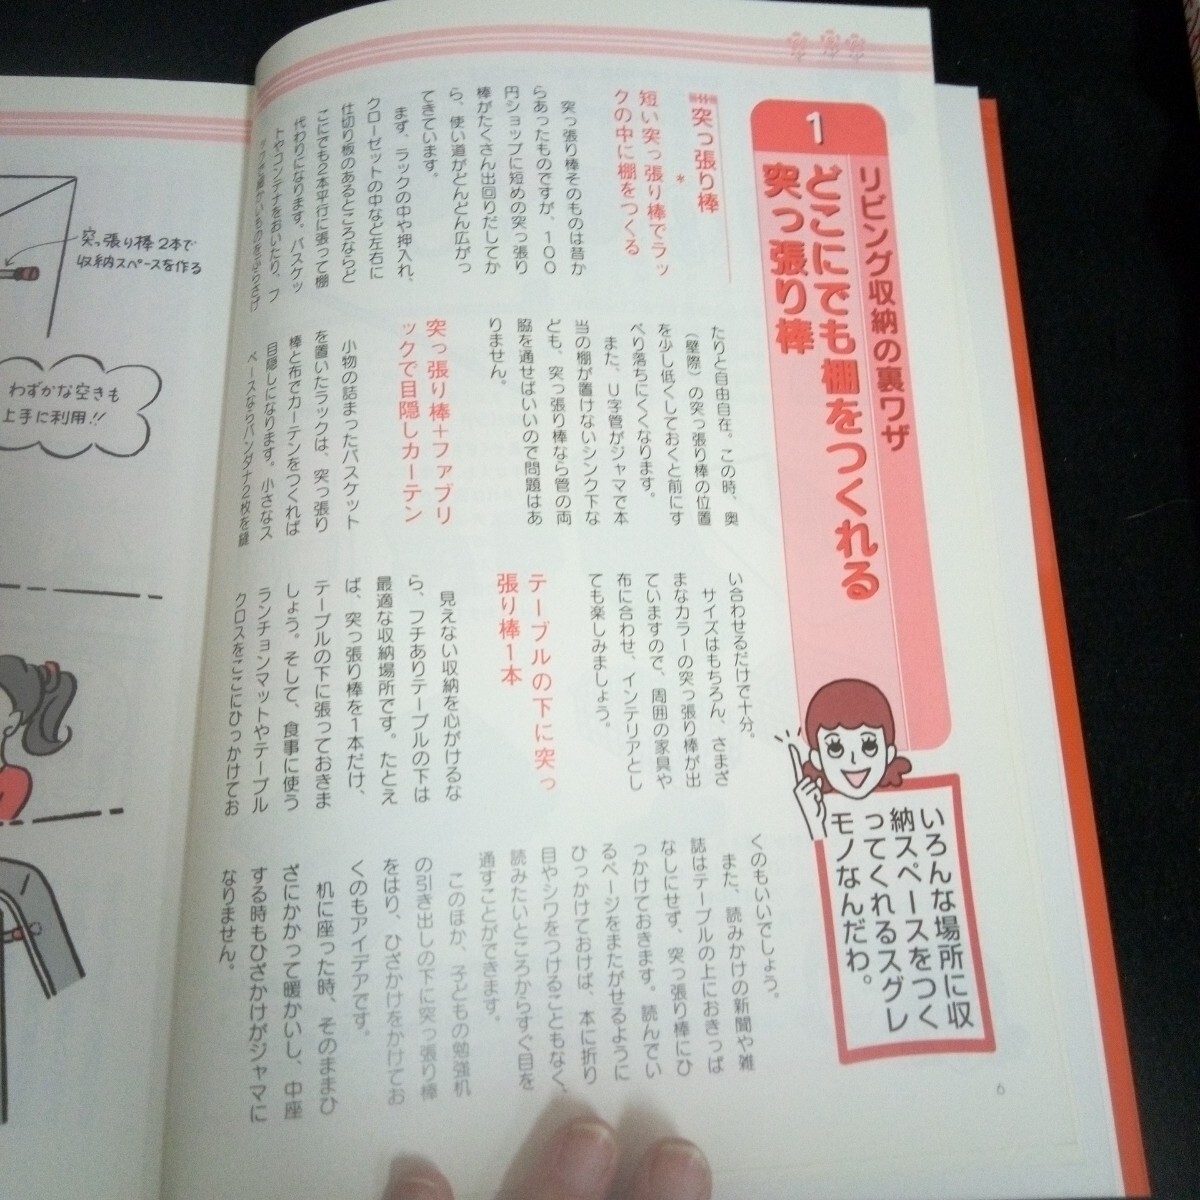 リビング収納の裏ワザ
1
どこにでも棚をつくれる
突っ張り棒
いろんな場所に収
納スペースをつく
ってくれるスグレ
モノなんだわ。
突っ張り棒
*
短い突っ張り棒でラッ
クの中に棚をつくる
突っ張り棒そのものは昔か
らあったものですが、100
円ショップに短めの突っ張り
棒がたくさん出回りだしてか
ら、使い道がどんどん広がっ
てきています。
まず、ラックの中や押入れ、
クローゼットの中など左右に
仕切り板のあるところならど
こにでも2本平行に張って棚
代わりになります。バスケッ
トやコンテナをおいたり、フ
たりと自由自在。この時、奥
(壁際)の突っ張り棒の位置
を少し低くしておくと前にす
べり落ちにくくなります。
また、U字管がジャマで本
当の棚が置けないシンク下な
ども、突っ張り棒なら管の両
脇を通せばいいので問題はあ
りません。
突っ張り棒+ファブリ
ックで目隠しカーテン
小物の詰まったバスケット
を置いたラックは、突っ張り
棒と布でカーテンをつくれば
目隠しになります。小さなス
ペースならバンダナ2枚を縫
い合わせるだけで十分。
サイズはもちろん、さまざ
まなカラーの突っ張り棒が出
ていますので、周囲の家具や
布に合わせ、インテリアとし
ても楽しみましょう。
テーブルの下に突っ
張り棒1本
見えない収納を心がけるな
ら、フチありテーブルの下は
最適な収納場所です。たとえ
ば、突っ張り棒を1本だけ、
テーブルの下に張っておきま
しょう。そして、食事に使う
ランチョンマットやテーブル
クロスをここにひっかけてお
くのもいいでしょう。
また、読みかけの新聞や雑
誌はテーブルの上におきっぱ
なしにせず、突っ張り棒にひ
っかけておきます。読んでい
るページをまたがせるように
ひっかけておけば、本に折り
目やシワをつけることもなく、
読みたいところからすぐ目を
通すことができます。
このほか、子どもの勉強机
の引き出しの下に突っ張り棒
をはり、ひざかけをかけてお
くのもアイデアです。
机に座った時、そのままひ
ざにかかって暖かいし、中座
する時もひざかけがジャマに
なりません。
6
突っ張り棒2本で
収納スペースを作る
わずかな空きも
上手に利用!!